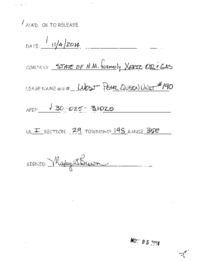 P/A'D. OK TO RELEASE
DATE 11/4/2014
COMPANY STATE OF N.M. formerly XERIC OIL & GAS
LEASE NAME and # WEST PEARL QUEEN UNIT #190
API# 30-025-31020
UL I SECTION 29 TOWNSHIP 19S RANGE 35E
SIGNED
NOV 05 2014